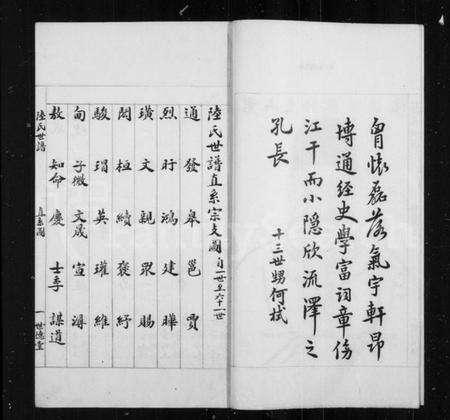 胷懷磊落氣宇軒昂
博通經史學富詞章傍
江干而小隱欣流澤之
孔長
十三世甥何栻
陸氏世譜直系宗支圖自一世至六十一世
通 發 皋 邕 賈
烈 盱 鴻 建 曄
璜 文 親 眾 賜
閎 桓 續 褒 紓
駿 瑁 英 瓘 維
甸 子微 文晟 宣 潯
敖 知命 慶 士季 謀道
陸氏世譜 直系圖 一 世德堂